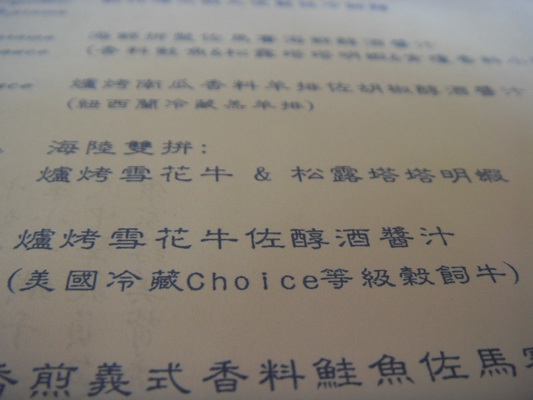 海鮮拼盤佐馬賽海鮮醇酒醬汁
爐烤南瓜香料羊排佐胡椒醇酒醬汁
(紐西蘭冷藏羔羊排)
海陸雙拚:
爐烤雪花牛 & 松露塔塔明蝦
爐烤雪花牛佐醇酒醬汁
(美國冷藏Choice等級穀飼牛)
香煎義式香料鮭魚佐馬